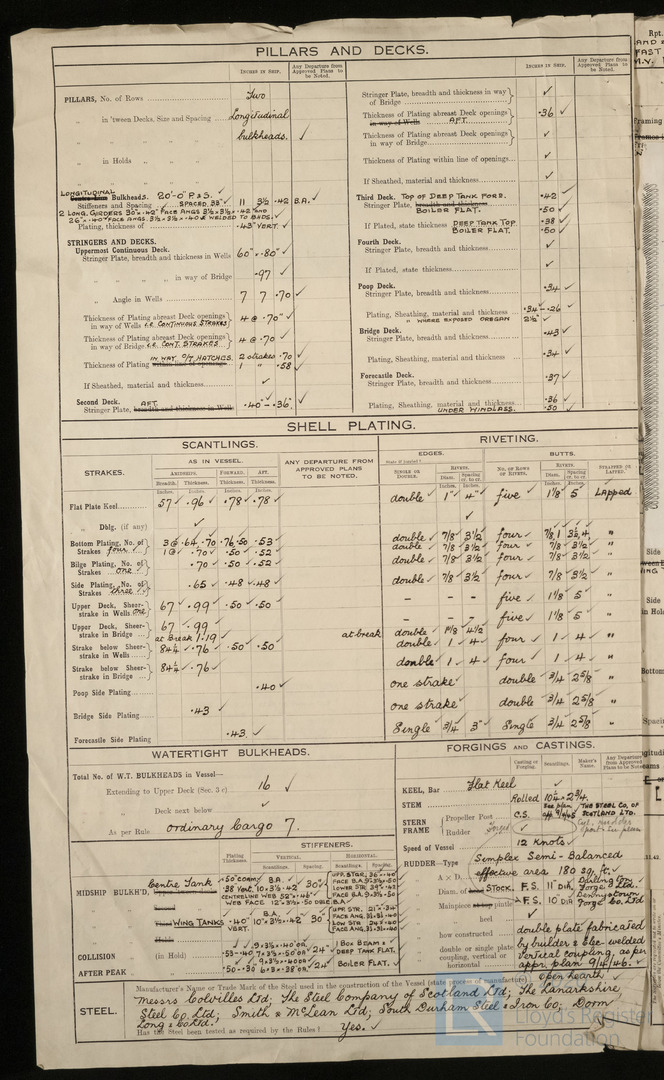 PILLARS AND DECKS.
INCHES IN SHIP.
Any Departure from Approved Plans to be Noted.
PILLARS, No. of Rows Two
„ in 'tween Decks, Size and Spacing Longitudinal
bulkheads. ✓
„ in Holds „ „
LONGITUDINAL
Bulkheads. 20'-0" P & S.
Stiffeners and Spacing SPACED 33" 11 3½ .42 B.A. ✓
2 LONG. GIRDERS 30" × .42" FACE ANGS 3½ × 3½ × .42 AND
26" × .40" FACE ANGS. 3½ × 3½ × .40 & WELDED TO BHDS.
Plating, thickness of .43" VERT. ✓
STRINGERS AND DECKS.
Uppermost Continuous Deck.
Stringer Plate, breadth and thickness in Wells 60" × .80" ✓
„ „ „ „ in way of Bridge .97 ✓
„ Angle in Wells 7 7 .70 ✓
Thickness of Plating abreast Deck openings
in way of Wells i.e. CONTINUOUS STRAKES 4 @ .70" ✓
Thickness of Plating abreast Deck openings
in way of Bridge i.e. CONT. STRAKES 4 @ .70 ✓
IN WAY O/T HATCHES. 2 strakes .70 ✓
Thickness of Plating within line of openings 1 „ .58 ✓
If Sheathed, material and thickness ✓
Second Deck. AFT.
Stringer Plate, breadth and thickness in Wells .40" - .36" ✓
INCHES IN SHIP.
Any Departure from Approved Plans to be Noted.
Stringer Plate, breadth and thickness in way
of Bridge ✓
Thickness of Plating abreast Deck openings
in way of Wells AFT. .36 ✓
Thickness of Plating abreast Deck openings
in way of Bridge ✓
Thickness of Plating within line of openings ✓
If Sheathed, material and thickness ✓
Third Deck. TOP OF DEEP TANK FORD. .42 ✓
Stringer Plate, breadth and thickness
BOILER FLAT. .50 ✓
If Plated, state thickness DEEP TANK TOP .38 ✓
BOILER FLAT. .50 ✓
Fourth Deck.
Stringer Plate, breadth and thickness ✓
If Plated, state thickness ✓
Poop Deck.
Stringer Plate, breadth and thickness .34 ✓
Plating, Sheathing, material and thickness .34 - .26 ✓
„ WHERE EXPOSED OREGAN 2½" ✓
Bridge Deck.
Stringer Plate, breadth and thickness .43 ✓
Plating, Sheathing, material and thickness .34 ✓
Forecastle Deck.
Stringer Plate, breadth and thickness .37 ✓
Plating, Sheathing, material and thickness .36 ✓
UNDER WINDLASS. .50 ✓
SHELL PLATING.
SCANTLINGS.
RIVETING.
STRAKES.
AS IN VESSEL.
ANY DEPARTURE FROM APPROVED PLANS TO BE NOTED.
EDGES.
BUTTS.
AMIDSHIPS. FORWARD. AFT.
Breadth. Thickness. Thickness. Thickness.
SINGLE OR DOUBLE. RIVETS. Diam. Spacing cr. to cr.
NO. OF ROWS OF RIVETS. RIVETS. Diam. Spacing cr. to cr. STRAPPED OR LAPPED.
Flat Plate Keel 57 ✓ .96 ✓ .78 ✓ .78 ✓ double ✓ 1" ✓ 4" ✓ five ✓ 1⅛ 5" Lapped
„ Dblg. (if any) ✓ ✓
Bottom Plating, No. of 3 @ .64 .70 .76, .50 .53 ✓ double ✓ 7/8 3½ ✓ four ✓ 7/8, 1 3½, 4 „
Strakes four 1 @ .70 ✓ .50 ✓ .52 ✓ double 7/8 3½ four 7/8 3½ „
Bilge Plating, No. of .70 ✓ .50 ✓ .52 ✓ double ✓ 7/8 3½ four ✓ 7/8 3½ „
Strakes one
Side Plating, No. of .65 ✓ .48 ✓ .48 ✓ double ✓ 7/8 3½ four ✓ 7/8 3½ ✓ „
Strakes three
Upper Deck, Sheer- 67 ✓ .99 ✓ .50 ✓ .50 ✓ - - - five ✓ 1⅛ 5" ✓ „
strake in Wells one
Upper Deck, Sheer- 67 ✓ .99 ✓ - - - five ✓ 1⅛ 5 ✓ „
strake in Bridge at Break 1.19 ✓ at break double ✓ 1⅛ 4½
Strake below Sheer- 84¼ ✓ .76 ✓ .50 ✓ .50 ✓ double ✓ 1 ✓ 4 ✓ four ✓ 1 ✓ 4 ✓ „
strake in Wells
Strake below Sheer- 84¼ ✓ .76 ✓ double ✓ 1 ✓ 4 ✓ four ✓ 1 ✓ 4 ✓ „
strake in Bridge
Poop Side Plating .40 ✓ one strake ✓ double ✓ ¾ ✓ 2⅝ ✓ „
Bridge Side Plating .43 ✓ one strake ✓ double ✓ ¾ ✓ 2⅝ ✓ „
Forecastle Side Plating .43 ✓ Single ✓ ¾ ✓ 3" ✓ Single ✓ ¾ ✓ 2⅝ ✓ „
WATERTIGHT BULKHEADS.
Total No. of W.T. BULKHEADS in Vessel—
Extending to Upper Deck (Sec. 3 c) 16 ✓
„ Deck next below ✓
As per Rule ordinary Cargo 7.
STIFFENERS.
Plating Thickness. VERTICAL. HORIZONTAL.
Scantlings. Spacing. Scantlings. Spacing.
MIDSHIP BULKH'D, Centre Tank
B.A.
.38 VERT. 10 × 3½ × .42 30" ✓
CENTRELINE WEB 52" × .46"
WEB FACE 12" × 3½ × .50 DBLE. B.A.
UPR. STGR. 36" × .40
LOWER STR. 39" × .42
WING TANKS .40" VERT. B.A. 10" × 3½ × .42 30"
UPR. STR. 21" × .34
LOW STR. 24 × .40
COLLISION „ (in Hold) .53-.40 9 × 3½ × .40 BA 7 × 3½ × .50 BA 24" ✓ 1 BOX BEAM & DEEP TANK FLAT.
AFTER PEAK „ „ .50-.30 9 × 3½ × .40 BA 6 × 3 × .38 BA 24" BOILER FLAT.
FORGINGS AND CASTINGS.
Casting or Forging. Scantlings. Maker's Name. Any Departure from Approved Plans to be Noted.
KEEL, Bar Flat Keel ✓
STEM Rolled 10¼ × 2¾.
STERN FRAME { Propeller Post C.S. THE STEEL CO. OF SCOTLAND LTD.
Rudder „
Speed of Vessel 12 Knots ✓
RUDDER—Type Simplex Semi-Balanced
A × D. effective area 180 sq. ft. ✓
Diam. of STOCK. F.S. 11" DIA. ✓
Mainpiece pintle F.S. 10" DIA.
„ heel ✓
how constructed double plate fabricated
by builder & Elec-welded
double or single plate
coupling, vertical or
horizontal Vertical coupling, as per
appr. plan 9/4/46. ✓
STEEL.
Manufacturer's Name or Trade Mark of the Steel used in the construction of the Vessel (state process of manufacture) open hearth
Messrs Colvilles Ltd; The Steel Company of Scotland Ltd; The Lanarkshire
Steel Co. Ltd; Smith & McLean Ltd; South Durham Steel & Iron Co; Dorm
Long & Co. Ltd.
Has the Steel been tested as required by the Rules? Yes. ✓
Lloyd's Register
Foundation